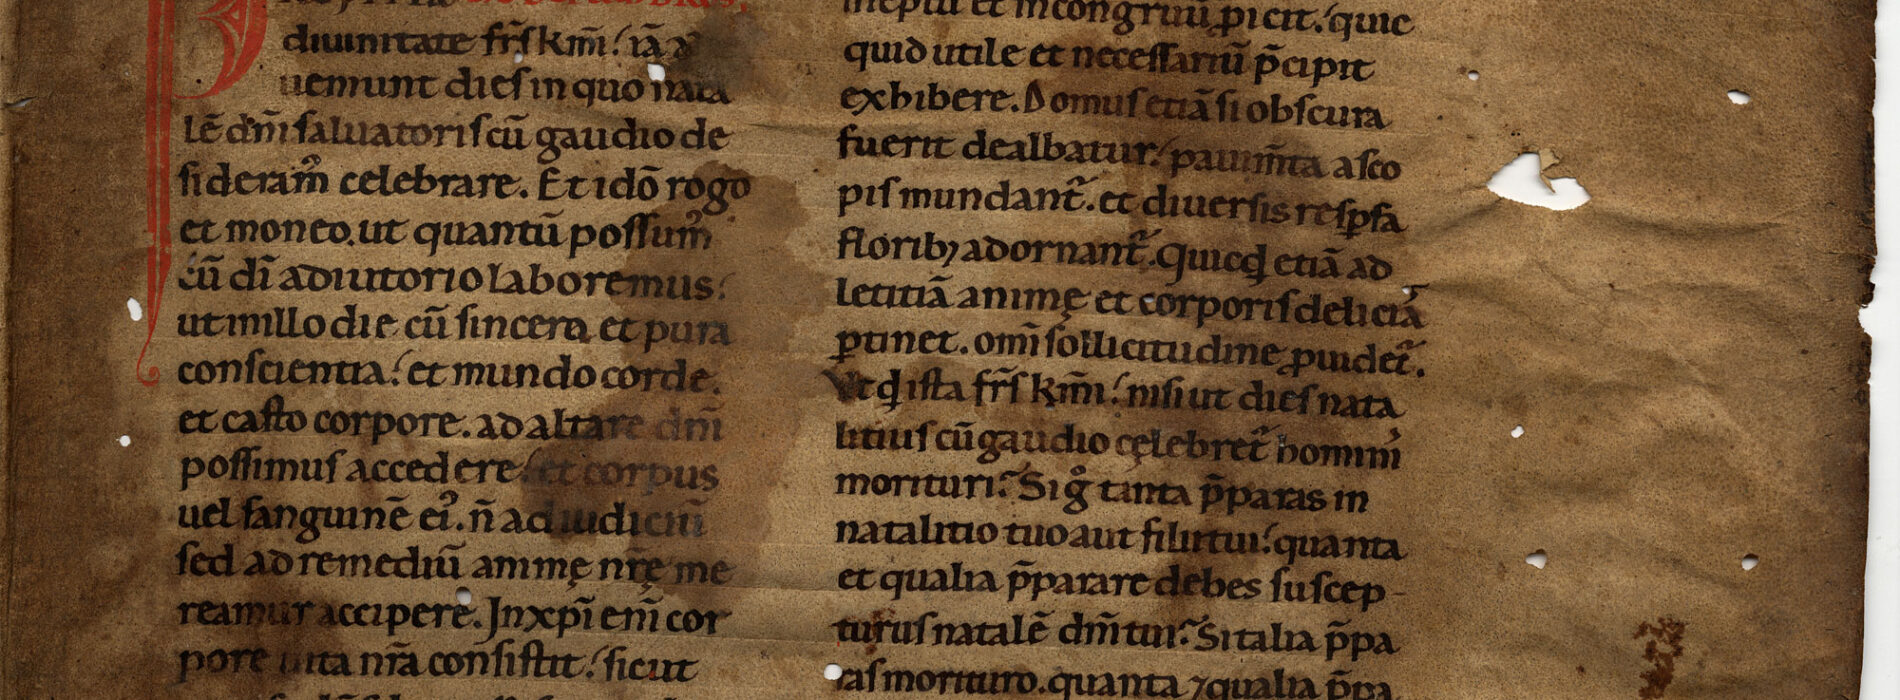 diuinitate fr̄s km̄i! iā ad
ueniunt dies in quo nata
lē dn̄i saluatoris cū gaudio de
sideram᷒ celebrare. Et idō rogo
et moneo. ut quantū possum᷒
cū di̅ adiutorio laboremus!
ut in illo die cū sincera et pura
conscientia! et mundo corde.
et casto corpore. ad altare dn̄i
possimus accedere! et corpus
uel sanguinē ei᷒. n̄ ad iudiciū
sed ad remediū animę nr̄ę me
reamur accipere. In xp̄i eni̅ cor
pore uita nr̄a consistit! sicut
ineptū et incongruū ꝓicit! quic
quid utile et necessariū p̄cipit
exhibere. Domus etiā si obscura
fuerit dealbatur! pauim̄ta a sco
pis mundant᷑. et diuersis respsa
florib; adornant᷑. Quicqđ etiā ad
letitiā animę et corporis deliciā
ꝑtinet. omi̅ sollicitudine ꝓuidet᷑.
Ut qđ ista fr̄s km̄i! nisi ut dies nata
litius cū gaudio celebret᷑ homini᷒
morituri? Si gͦ tanta p̄paras in
natalitio tuo aut filii tui! quanta
et qualia p̄parare debes suscep-
turus natalē dn̄i tui? Si talia p̄pa
ras morituro. quanta ⁊ qualia p̄pa